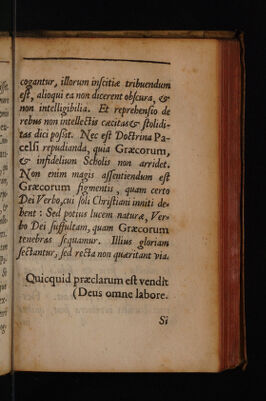 cogantur, illorum inscitiæ tribuendum
est, alioqui ea non dicerent obscura, &
non intelligibilia. Et reprehensio de
rebus non intellectis cæcitas & stolidi-
tas dici possit. Nec est Doctrina Pa-
celsi repudianda, quia Græcorum,
& infidelium Scholis non arridet.
Non enim magis assentiendum est
Græcorum figmentis, quam certo
Dei Verbo, cui soli Christiani inniti de-
bent: Sed potius lucem naturæ, Ver-
bo Dei suffultam, quam Græcorum
tenebras sequamur. Illius gloriam
sectantur, sed recta non quæritant via.
Quicquid præclarum est vendit
(Deus omne labore.
Si